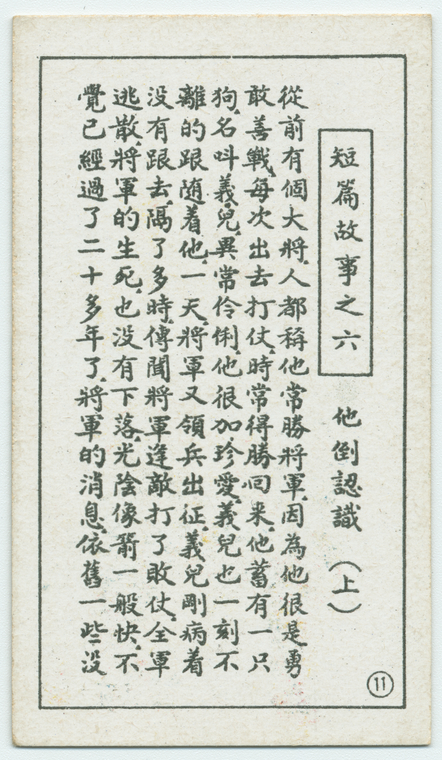 短篇故事之六
他倒認識（上）
從前有個大將，人都稱他常勝將軍，因為他很是勇
敢善戰，每次出去打仗，時常得勝回来，他蓄有一只
狗，名叫義兒，異常伶俐，他很加珍愛，義兒也一刻不
離的跟随着他，一天，將軍又領兵出征，義兒剛病着
没有跟去，隔了多時，傳聞將軍逢敵打了敗仗，全軍
逃散，將軍的生死，也没有下落，光陰像箭一般快，不
覺已經過了二十多年了，將軍的消息，依舊一些没
11